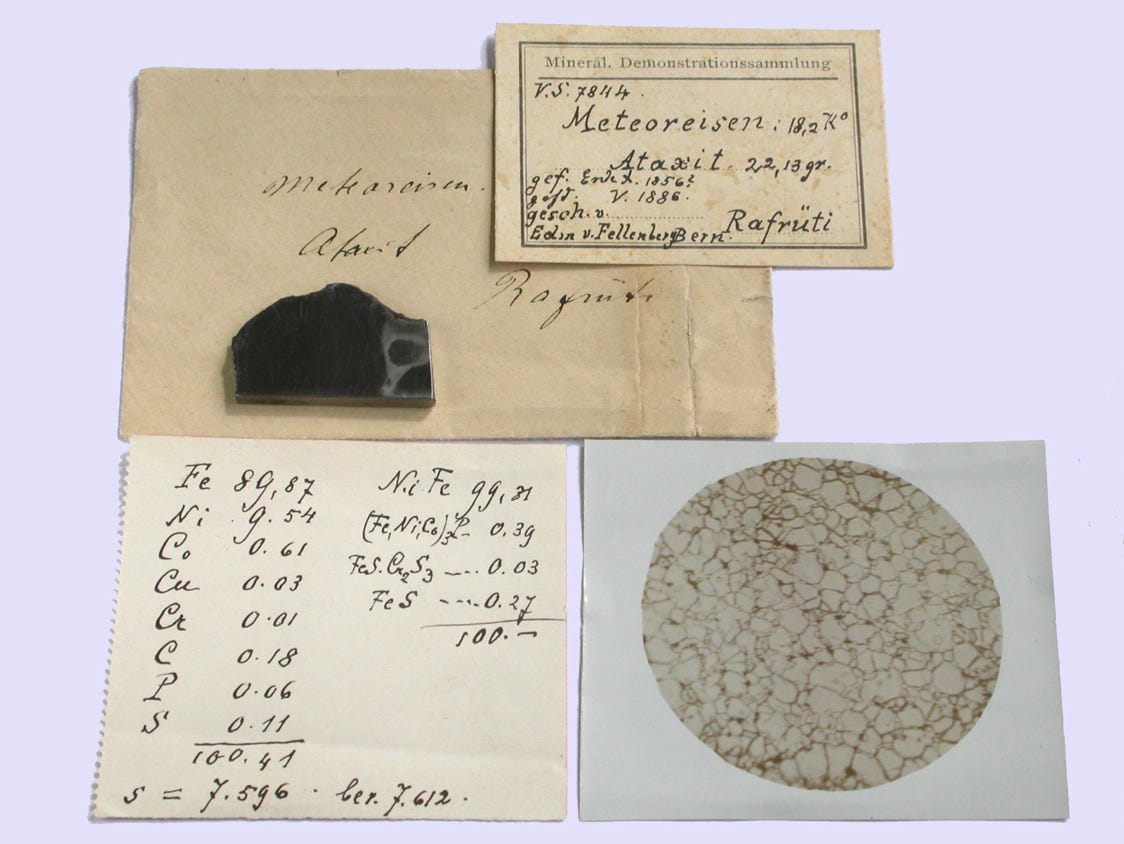 Mineral. Demonstrationssammlung
V.S. 7844.
Meteoreisen: 18,2 K°
Ataxit. 22,13 gr.
gef. 1856?
V. 1886.
gesch. v.
Rafrüti
Edm v. Fellenberg Bern.
Meteoreisen.
Ataxit
Rafrüti.
Fe 89,87
Ni 9.54
Co 0.61
Cu 0.03
Cr 0.01
C 0.18
P 0.06
S 0.11
100.41
s = 7.596 . ber. 7.612.
NiFe 99,31
(Fe,Ni,Co)3P- 0.39
FeS.Cr2S3 --.. 0.03
FeS ---. 0.27
100.-